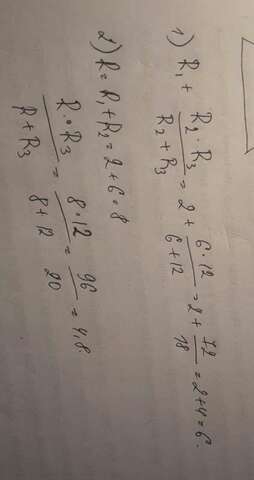 1) R₁ + R₂ · R₃ / R₂ + R₃ = 2 + 6 · 12 / 6 + 12 = 2 + 72 / 18 = 2 + 4 = 6.
2) R = R₁ + R₂ = 2 + 6 = 8
R · R₃ / R + R₃ = 8 · 12 / 8 + 12 = 96 / 20 = 4,8.